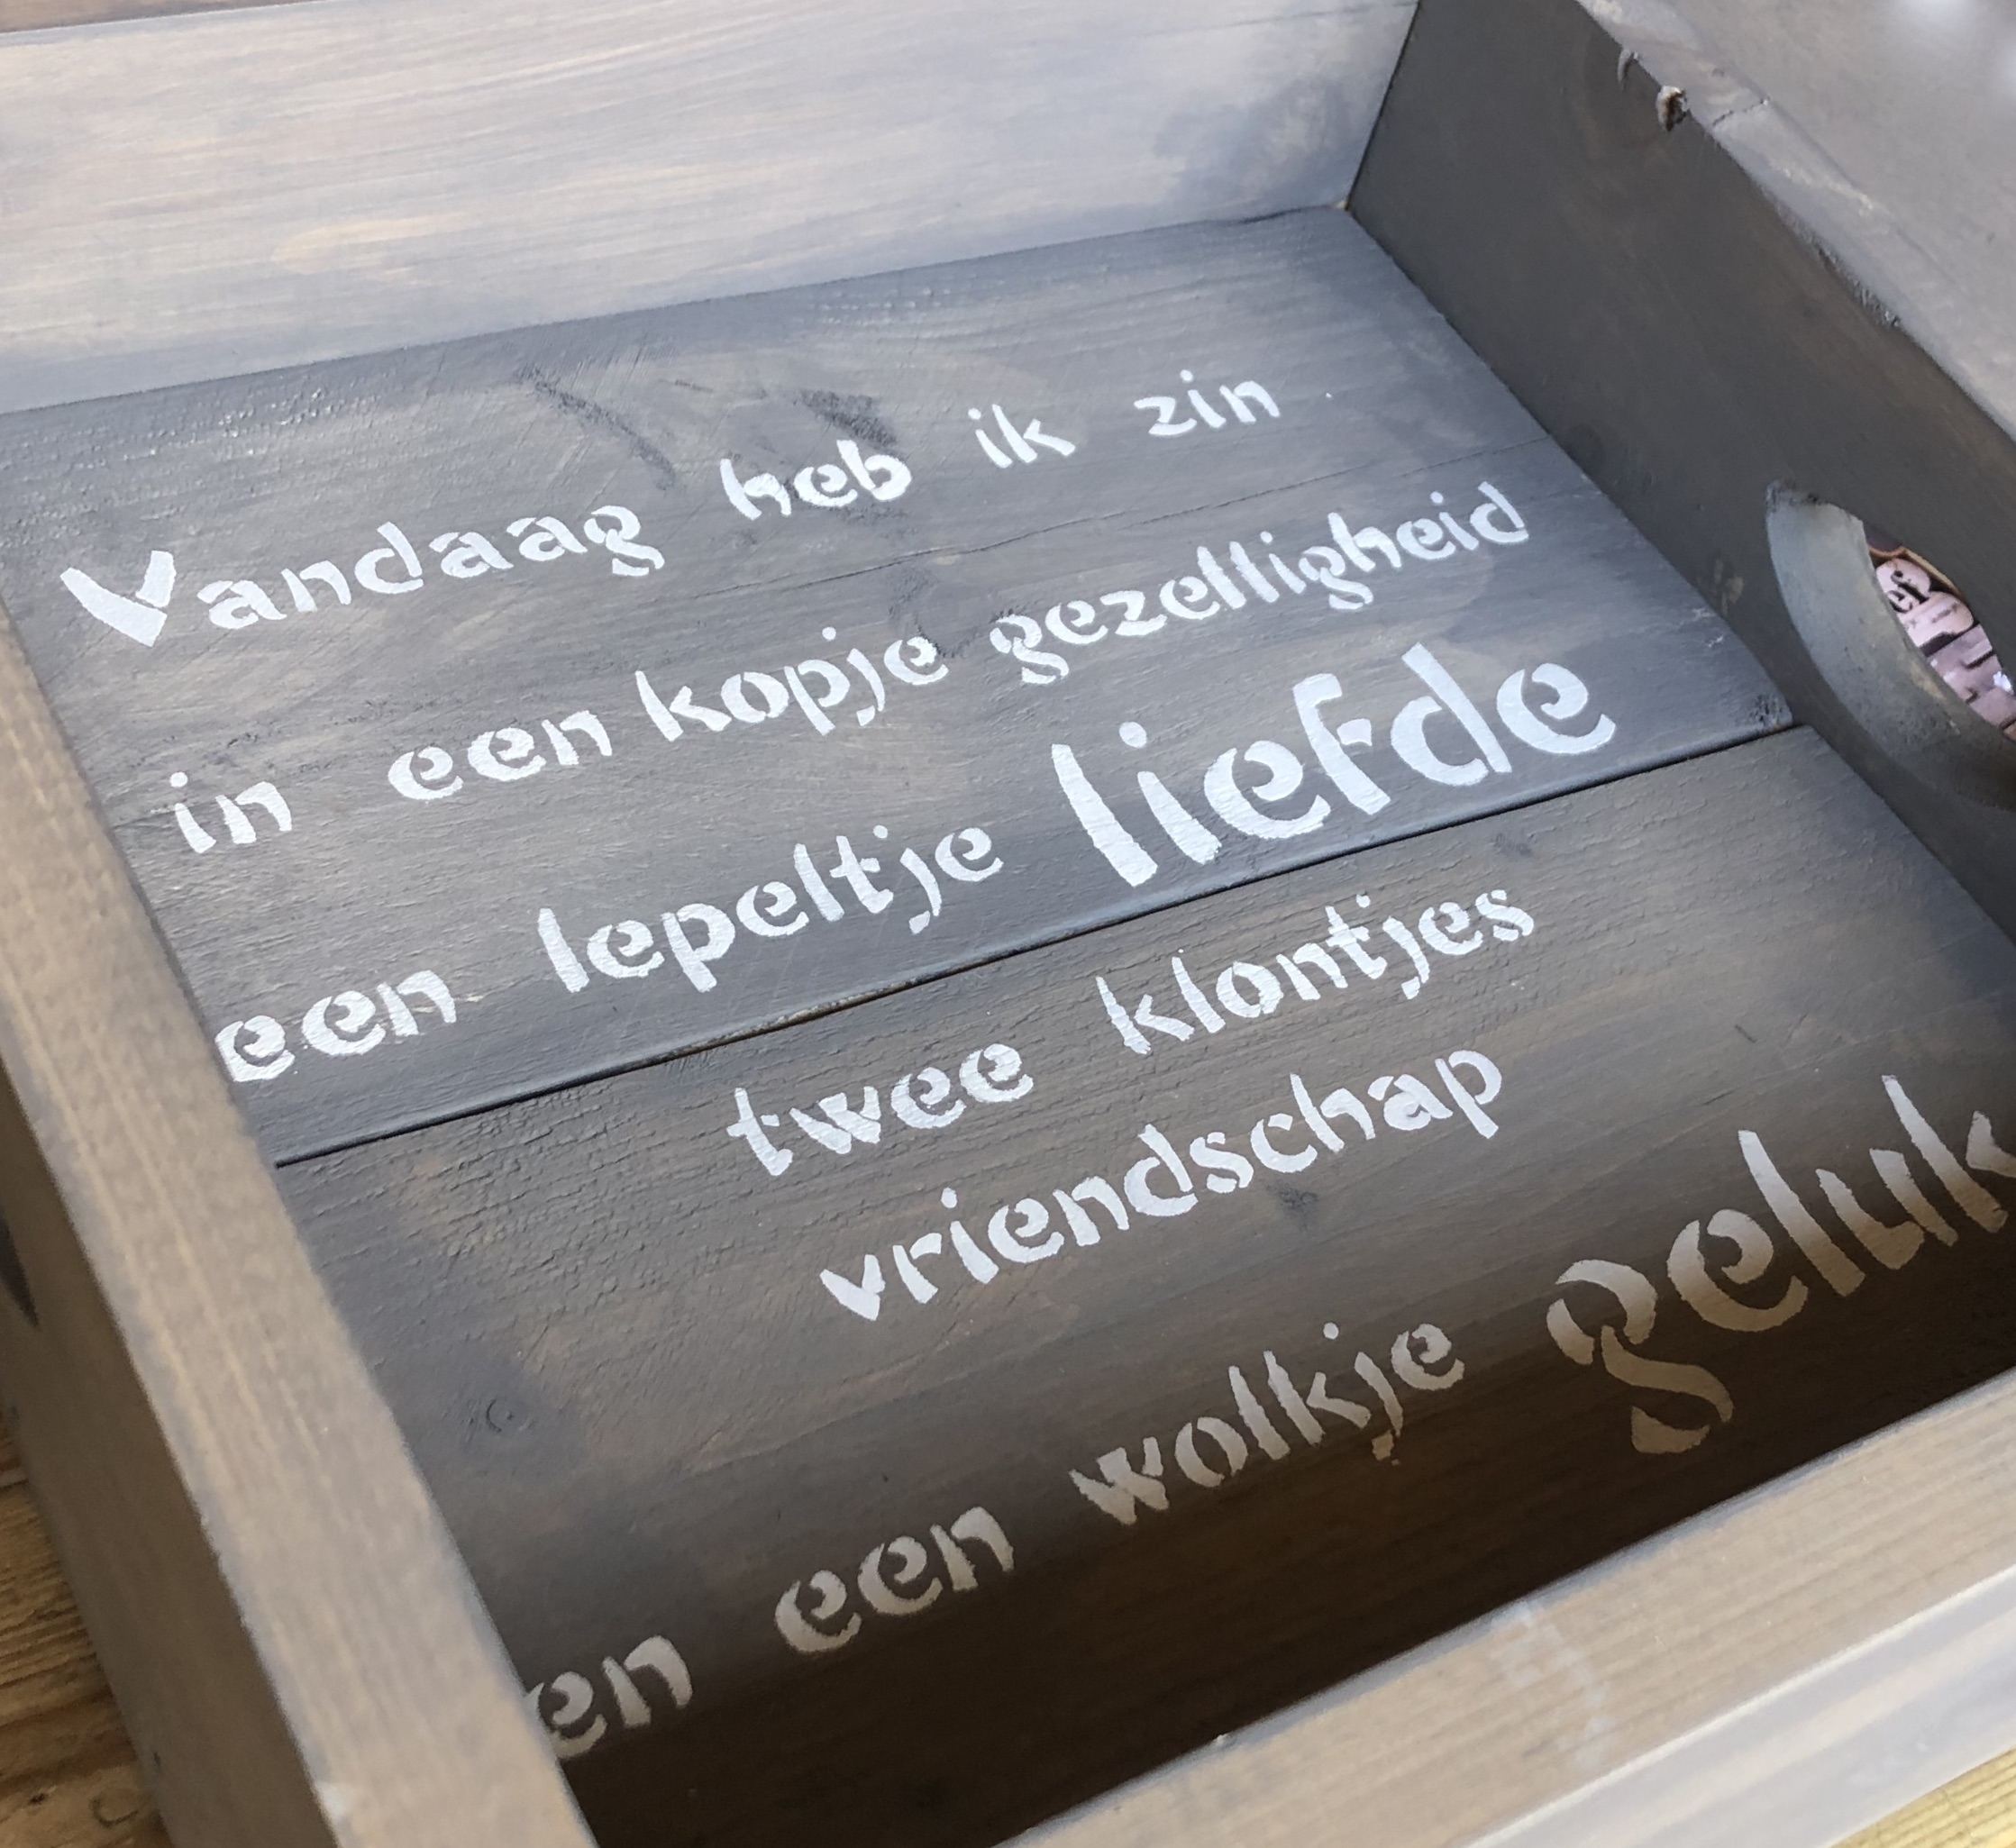 Vandaag heb ik zin
in een kopje gezelligheid
een lepeltje liefde
twee klontjes
vriendschap
en een wolkje geluk